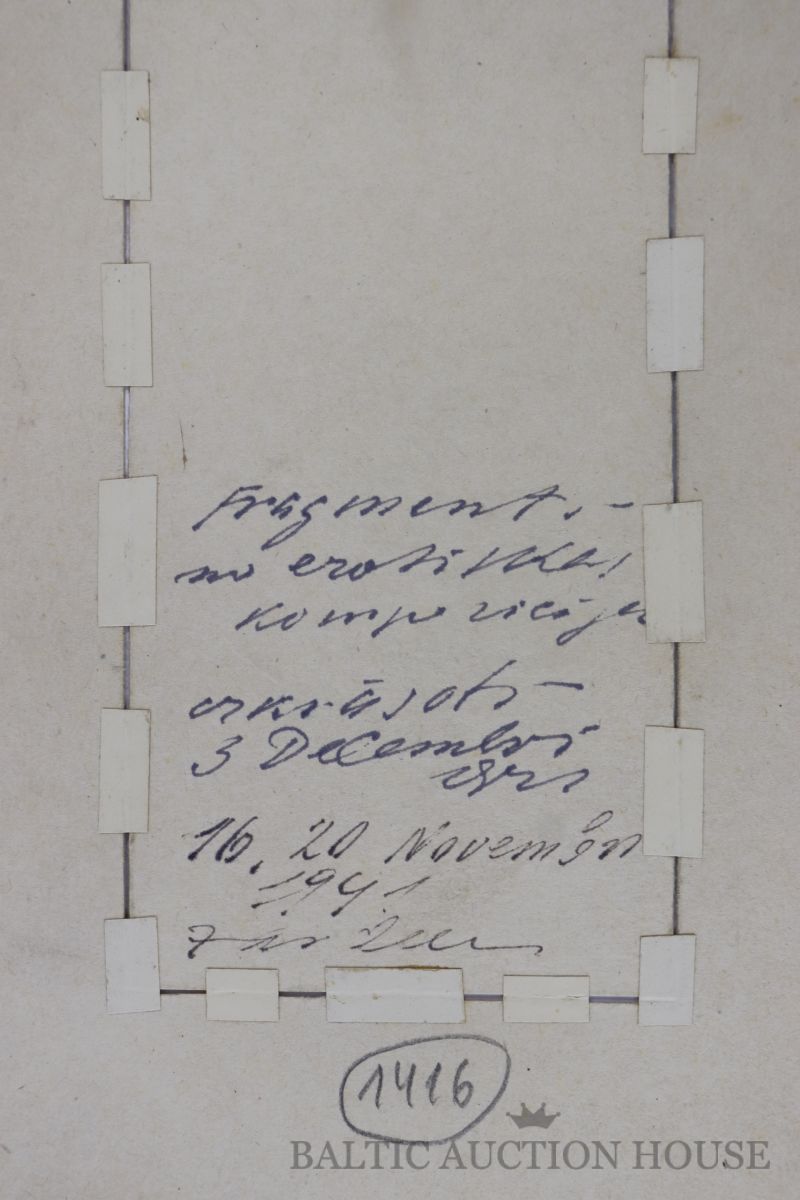 Fragment. -
no erotiska,
kompozicija
3 Decembri
16, 20 Novembri
1941
1416
BALTIC AUCTION HOUSE